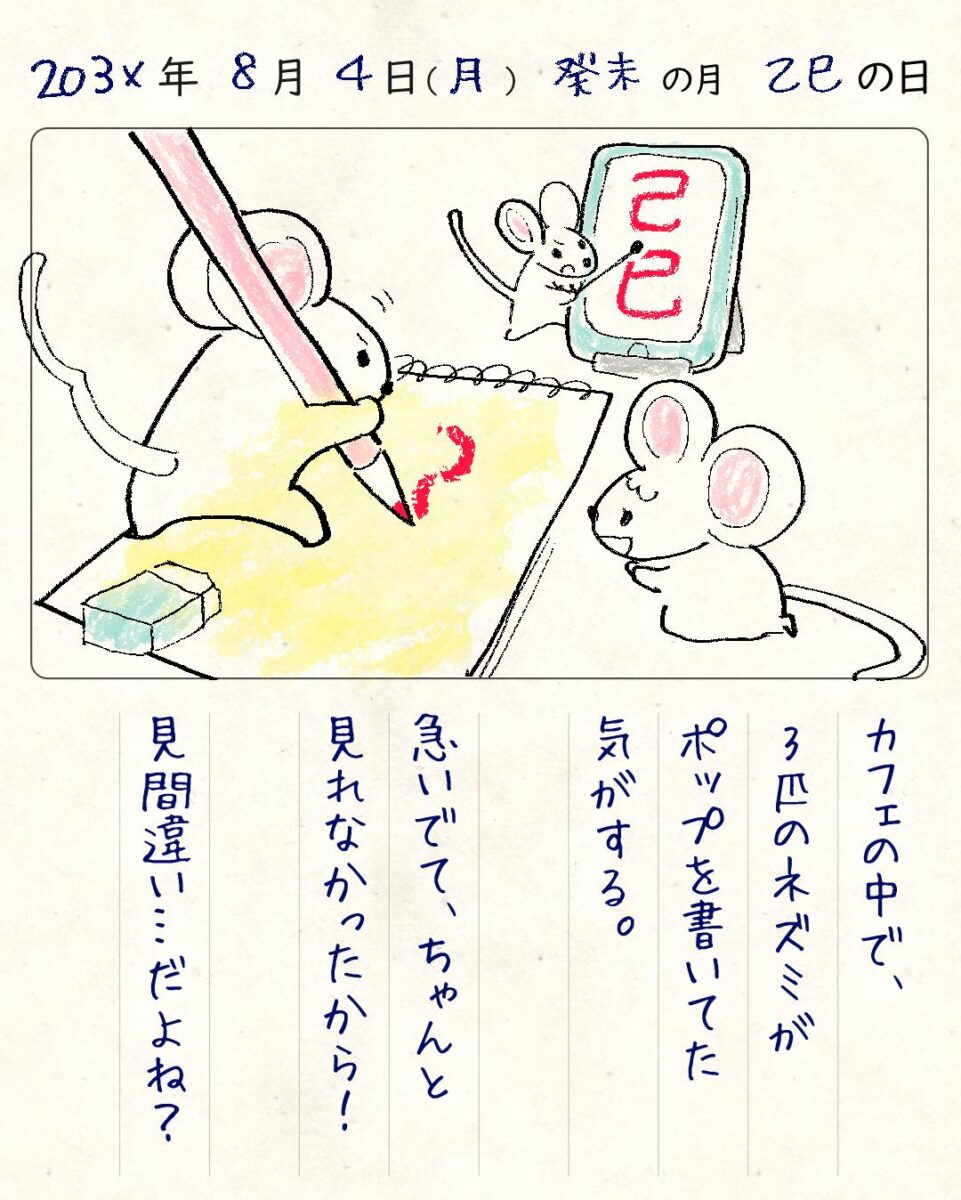 203x年 8月 4日(月) 癸未の月 乙巳の日
己巳
カフェの中で、
3匹のネズミが
ポップを書いてた
気がする。
急いでて、ちゃんと
見れなかったから!
見間違い…だよね?